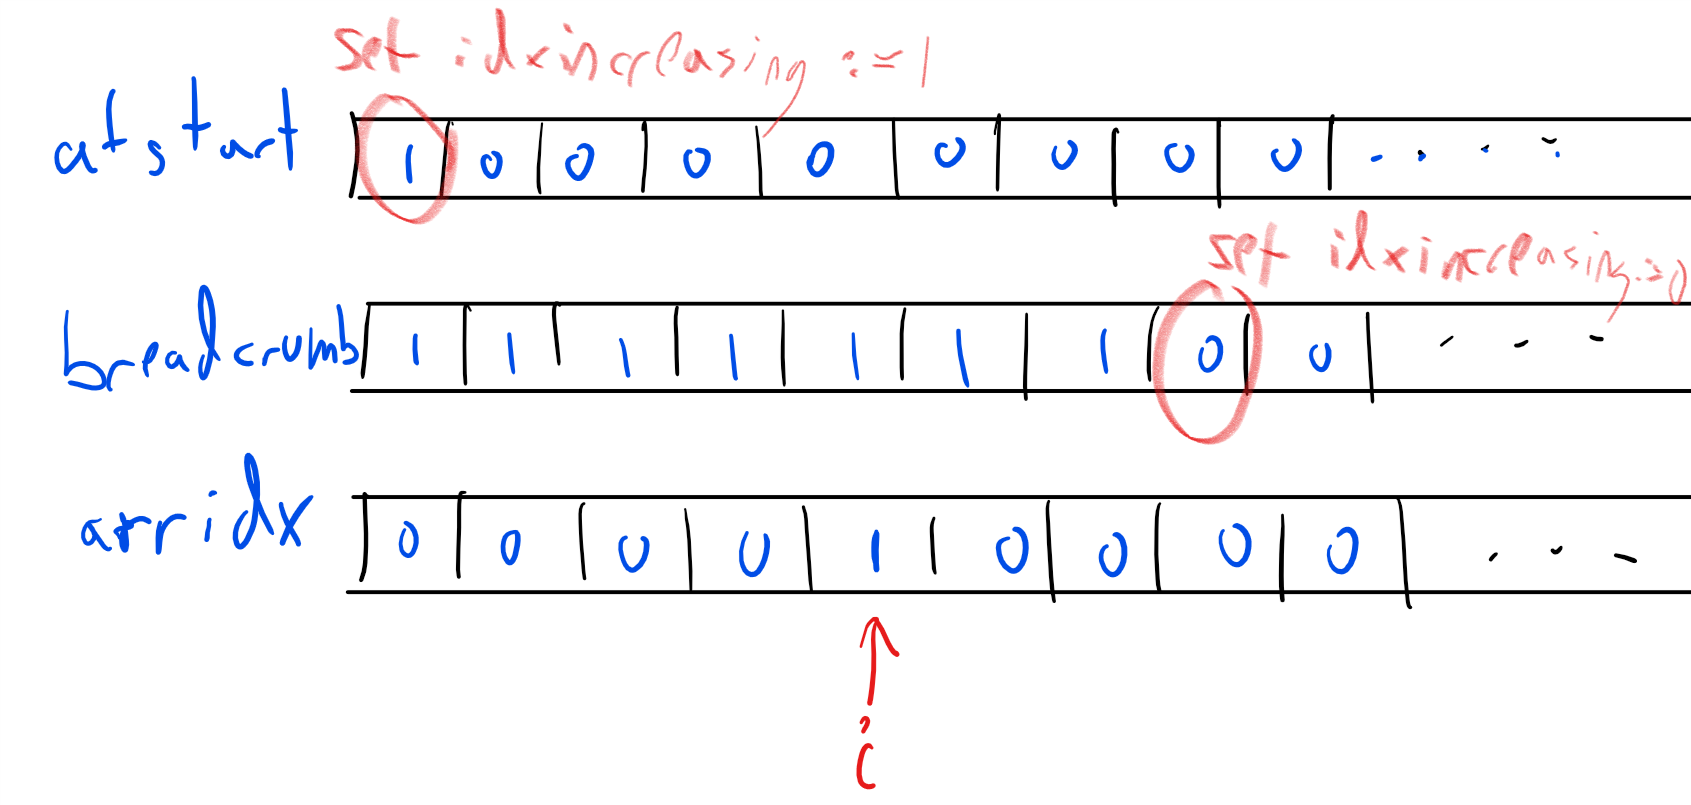 set idxincreasing := 1
atstart 1 0 0 0 0 0 0 0 0 . . . .
set idxincreasing := 0
breadcrumb 1 1 1 1 1 1 1 0 0 . . .
arridx 0 0 0 0 1 0 0 0 0 . . .
i